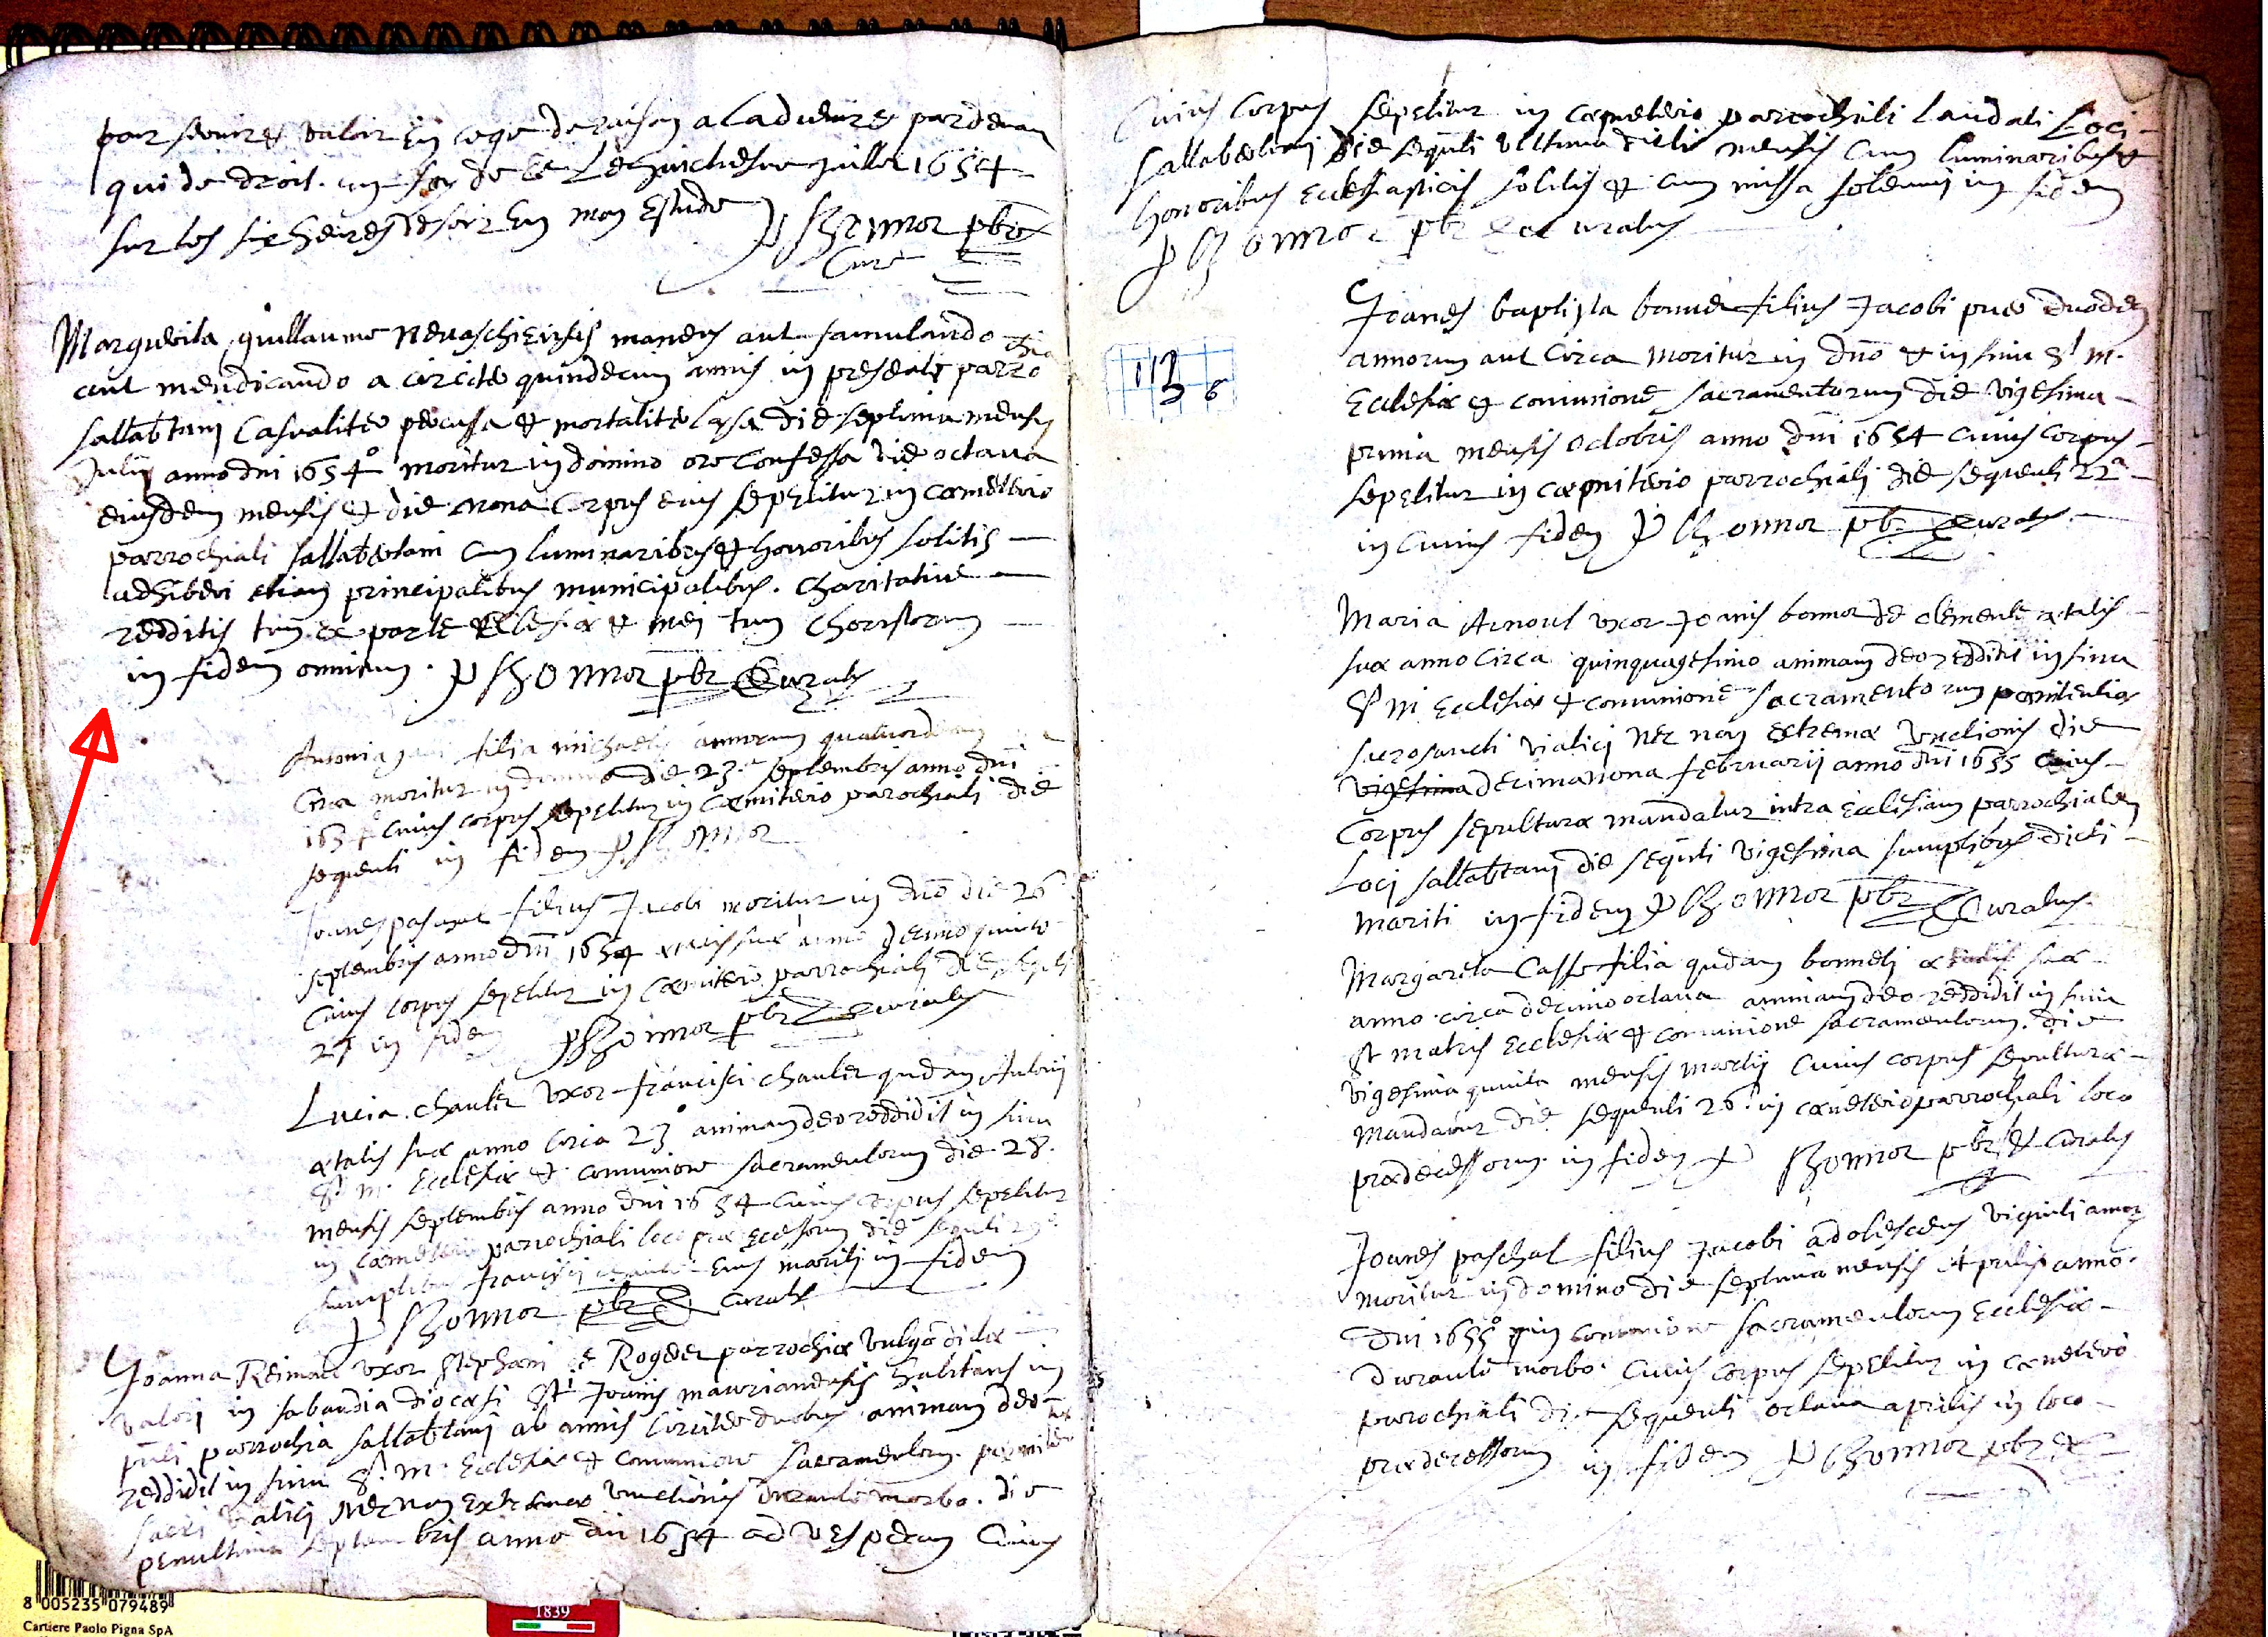 pour servir et valoir en ce que de raison a l advenir et pardevant
qui de droit. en foy de ce Le huictiesme Juillet 1654
sur les six heures de soir En mon Estude P Rhonnor pbre
Curé
Marguerita guillaume Nevaschiensis manens aut famulando
aut mendicando a circiter quindecim annis in presenti parrochia
sallabtani Casualiter percussa et mortaliter lesa die septima mensis
Julij anno dni 1654º moritur in domino ore confessa die octava
eiusdem mensis et die nona Corpus eius sepelitur in cœmeterio
parrochiali sallabertani cum luminaribus et honoribus solitis
adhiberi etiam principalibus municipalibus. charitative
redditis tum ex parte Ecclesiæ et mei tum choristarum
in fidem omnium. P Rhonnor pbr Curatus
Antonia filia michaelis annorum quatuordecim
Circa moritur in domino die 23.a septembris anno dni
1654º cuius corpus sepelitur in cœmiterio parochiali die
sequenti in fidem P Rhonnor
Joanes paschal filius Jacobi moritur in dno die 26a
septembris anno dni 1654 ætatis suæ anno decimo quinto
Cuius corpus sepelitur in cœmiterio parrochiali die sequti
27 in fidem P Rhonnor pbr Curatus
Lucia chautier uxor francisci chautier qudam Antonij
ætatis suæ anno circa 23º animam deo reddidit in sinu
Stæ m. Ecclesiæ et comunione sacramentorum die 28.
mensis septembris anno dni 1654 cuius corpus sepelitur
in cœmeterio parrochiali loco prædecessorum die sequti 29a
sumptibus francisci chautier Eius mariti in fidem
P Rhonnor pbr Curatus
Joanna Reimau uxor stephani de Rogeder parrochiæ vulgo dictæ
valorj in sabaudia diocæsi sti Joanis maurianensis habitans in
pnti parrochia sallabtani ab annis circiter duobus animam deo
reddidit in sinu S. m. Ecclesiæ et comunione sacramentorum pœnitentiæ
sacri viatici Nec non Extremæ unctionis durante morbo. die
penultima septembris anno dni 1654 ad vesperam Cuius
Cuius Corpus sepelitur in cœmeterio parrochiali laudati Loci
sallabertani die sequti ultima dicti mensis cum luminaribus et
honoribus Ecclesiasticis solitis et cum missa solemni in fidem
P Rhonnor pbr et curatus
113
6
Joanes baptista bonnet filius Jacobi puer duodecim
annorum aut Circa moritur in dno et in sinu S. m.
Ecclesiæ et comunione sacramentorum die vigesima
prima mensis octobris anno dni 1654 cuius Corpus
sepelitur in cœpmiterio parrochiali die sequenti 22a
in Cuius fidem P Rhonnor pbr Curatus
Maria Arnoul uxor Joanis bonnot de clement ætatis
suæ anno Circa quinquagesimo animam deo reddidit in sinu
S. m Ecclesiæ et comunione sacramentorum pœnitentiæ
sacrosancti viatici Nec non extremæ Unctionis die
vigesima decimanona februarij anno dni 1655 Cuius
Corpus sepulturæ mandatur intra Ecclesiam parrochialem
Loci sallabtani die sequti vigesima sumptibus dicti
mariti in fidem P Rhonnor pbr Curatus.
Margareta Casse filia qudam bonneti ætatis suæ
anno circa decimo octava animam deo reddidit in sinu
St matris Ecclesiæ et comunione sacramentorum. die
vigesima quinta mensis martij Cuius corpus sepulturæ
mandatur die sequenti 26a in cœmeterio parrochiali loco
prædecessorum in fidem P Rhonnor pbr et Curatus
Joanes paschal filius Jacobi adolescens viginti annorum
moritur in domino die septima mensis Aprilis anno
dni 1655º in comunione sacramentorum Ecclesiæ
durante morbo cuius corpus sepelitur in cæmeterio
parrochiali die sequenti octava aprilis in loco
prædecessorum in fidem P Rhonnor pbr et
8 005235 079489
Cartiere Paolo Pigna SpA
1839